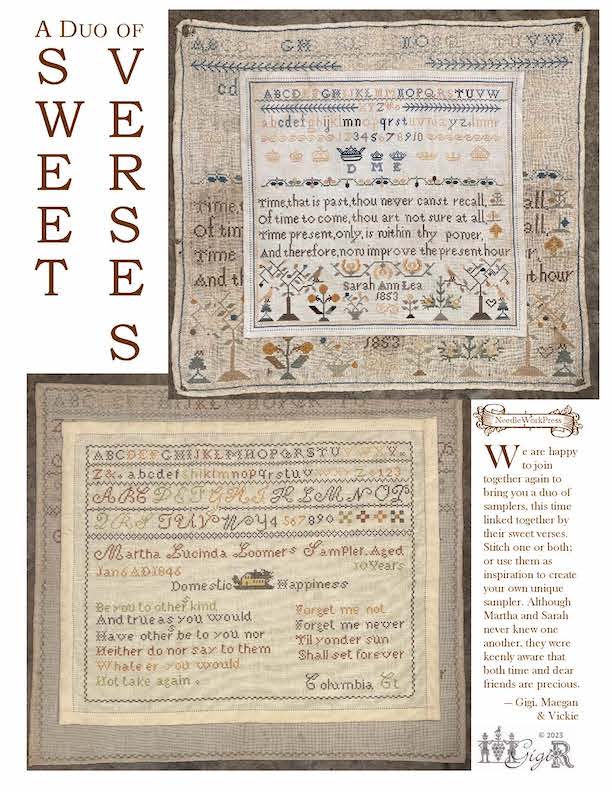 A DUO OF
SWEET
VERSES
ABCDEFGHIJKLMNOPQRSTUVW
XYZ&
abcdefghijklmnopqrstuvwxyz
12345678910
D M E
Time,that is past,thou never canst recall,
Of time to come,thou art not sure at all
Time present,only,is within thy power,
And therefore,now improve the present hour
Sarah Ann Lea
1853
1853
NeedleWorkPress
We are happy
to join
together again to
bring you a duo of
samplers, this time
linked together by
their sweet verses.
Stitch one or both;
or use them as
inspiration to create
your own unique
sampler. Although
Martha and Sarah
never knew one
another, they were
keenly aware that
both time and dear
friends are precious.
— Gigi, Maegan
& Vickie
© 2023
Gigi R
ABCDEFGHIJKLMNOPQRSTU
Z& abcdefghijklmnopqrstuv
123
4567890
Martha Lucinda Loomers Sampler Aged
Jan 6 AD 1846
10 Years
Domestic Happiness
Be you to others kind
And true as you would
Have other be to you nor
Neither do nor say to them
Whate er you would
Not take again
Forget me not
Forget me never
Til yonder sun
Shall set forever
Columbia Ct